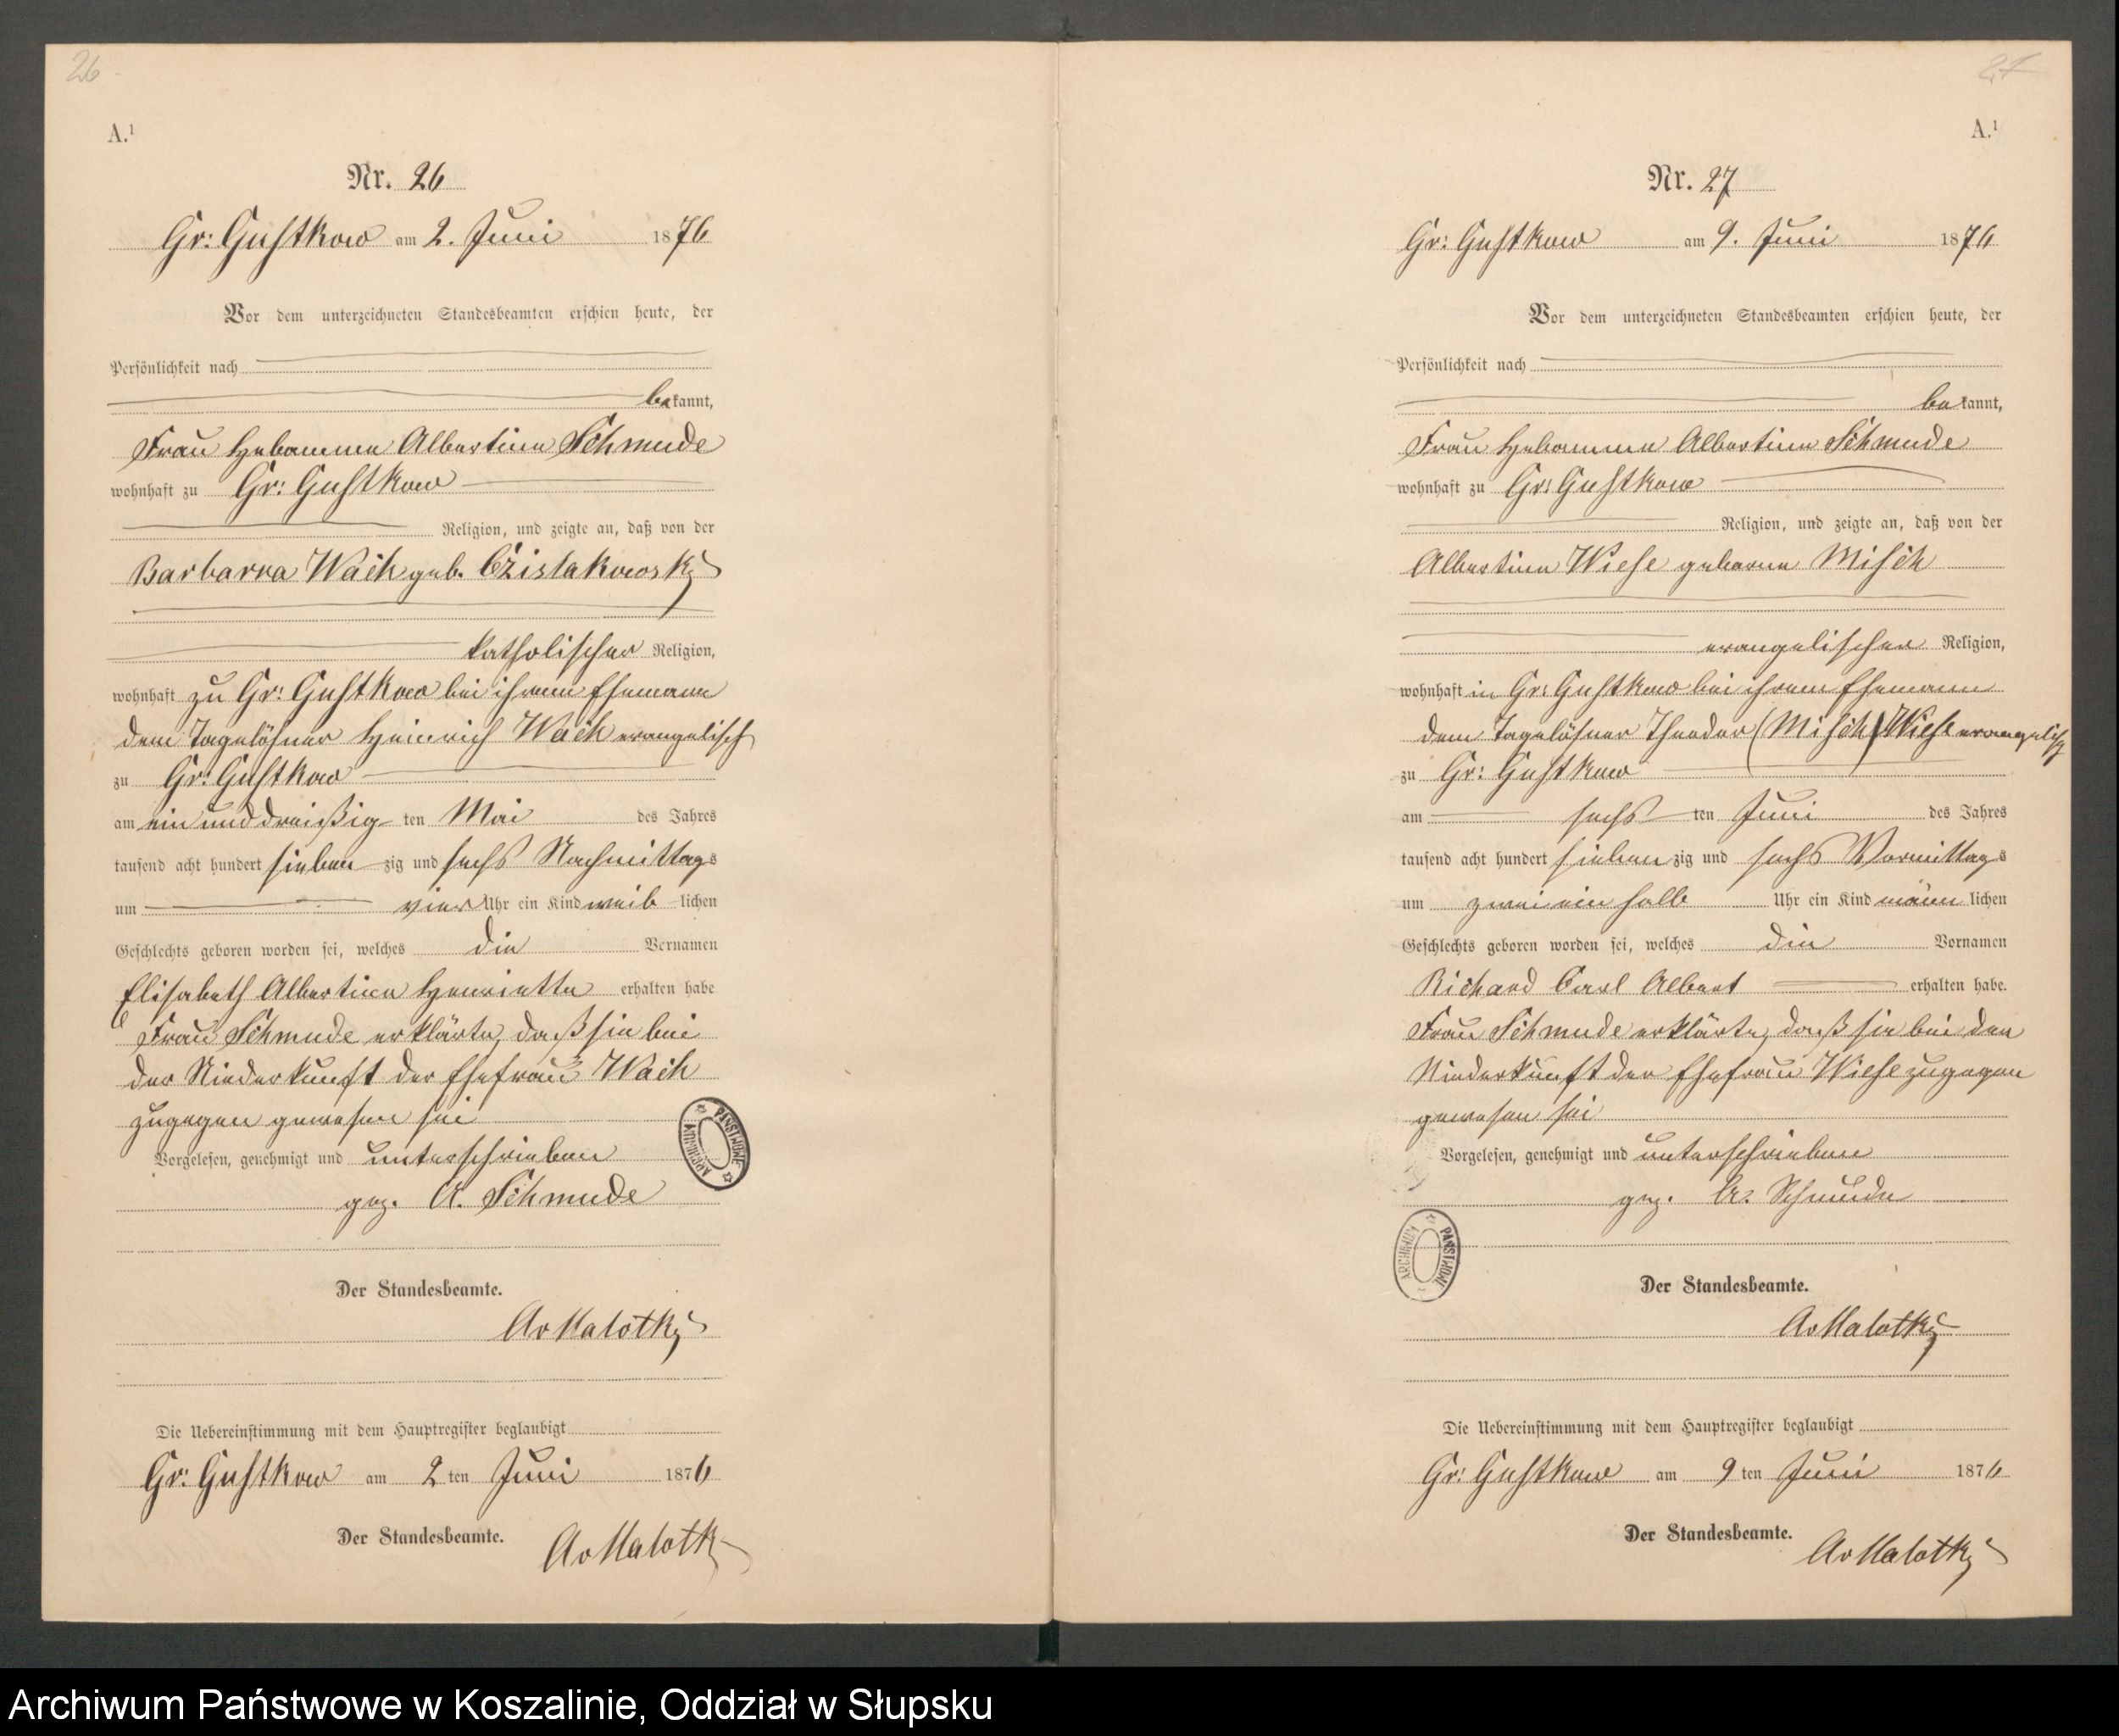 26
A.¹
Nr. 26
Gr: Gustkow am 2. Juni 1876
Vor dem unterzeichneten Standesbeamten erschien heute, der
Persönlichkeit nach
bekannt,
Frau Hebamme Albertine Schmude
wohnhaft zu Gr: Gustkow
Religion, und zeigte an, daß von der
Barbarra Wäck geb. Czislakowsky
katholischer Religion,
wohnhaft zu Gr: Gustkow bei ihrem Ehemann
dem Tagelöhner Heinrich Wäck evangelisch
zu Gr: Gustkow
am ein und dreißig ten Mai des Jahres
tausend acht hundert sieben zig und sechs Nachmittags
um vier Uhr ein Kind weib lichen
Geschlechts geboren worden sei, welches die Vornamen
Elisabeth Albertine Henriette erhalten habe
Frau Schmude erklärte, daß sie bei
der Niederkunft der Ehefrau Wäck
zugegen gewesen sei
Vorgelesen, genehmigt und unterschrieben
gez. A. Schmude
ARCHIWUM PAŃSTWOWE
Der Standesbeamte.
AvMalotky
Die Uebereinstimmung mit dem Hauptregister beglaubigt
Gr: Gustkow am 2 ten Juni 1876
Der Standesbeamte. AvMalotky
27
A.¹
Nr. 27
Gr: Gustkow am 9. Juni 1876
Vor dem unterzeichneten Standesbeamten erschien heute, der
Persönlichkeit nach
bekannt,
Frau Hebamme Albertine Schmude
wohnhaft zu Gr: Gustkow
Religion, und zeigte an, daß von der
Albertine Wiese geborne Misch
evangelischer Religion,
wohnhaft in Gr: Gustkow bei ihrem Ehemann
dem Tagelöhner Theodor (Misch) Wiese evangelisch
zu Gr: Gustkow
am sechs ten Juni des Jahres
tausend acht hundert sieben zig und sechs Vormittags
um zwei ein halb Uhr ein Kind männ lichen
Geschlechts geboren worden sei, welches die Vornamen
Richard Carl Albert erhalten habe.
Frau Schmude erklärte, daß sie bei der
Niederkunft der Ehefrau Wiese zugegen
gewesen sei
Vorgelesen, genehmigt und unterschrieben
gez. A. Schmude
ARCHIWUM PAŃSTWOWE
Der Standesbeamte.
AvMalotky
Die Uebereinstimmung mit dem Hauptregister beglaubigt
Gr: Gustkow am 9 ten Juni 1876
Der Standesbeamte. AvMalotky
Archiwum Państwowe w Koszalinie, Oddział w Słupsku